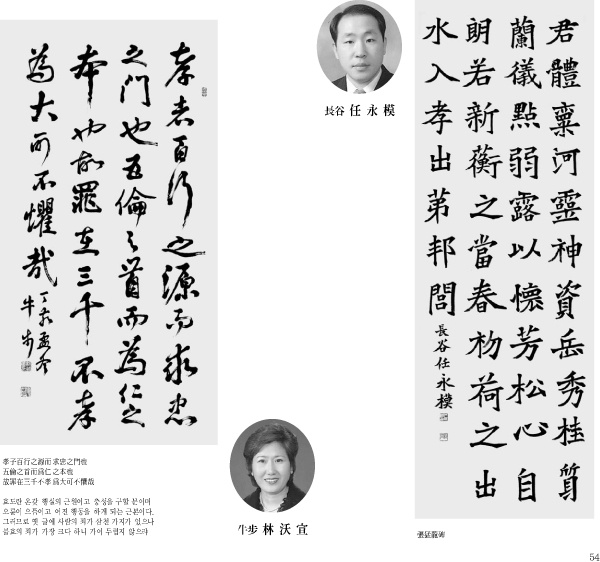 孝者百行之源而求忠
之門也五倫之首而為仁之
本也故罪在三千不孝
為大可不懼哉
丁亥孟冬
牛步
孝子百行之源而 求忠之門也
五倫之首而爲仁 之本也
故罪在三千不孝 爲大可不懼哉
효도란 온갖 행실의 근원이고 충성을 구할 문이며
오륜의 으뜸이고 어진 행동을 하게 되는 근본이다.
그러므로 옛 글에 사람의 죄가 삼천 가지가 있으나
불효의 죄가 가장 크다 하니 가히 두렵지 않으랴
長谷 任永模
牛步 林沃宣
君體稟河靈神資岳秀桂質
蘭儀點弱露以懷芳松心自
朗若新蘅之當春初荷之出
水入孝出第邦閭
長谷任永模
張猛龍碑
54